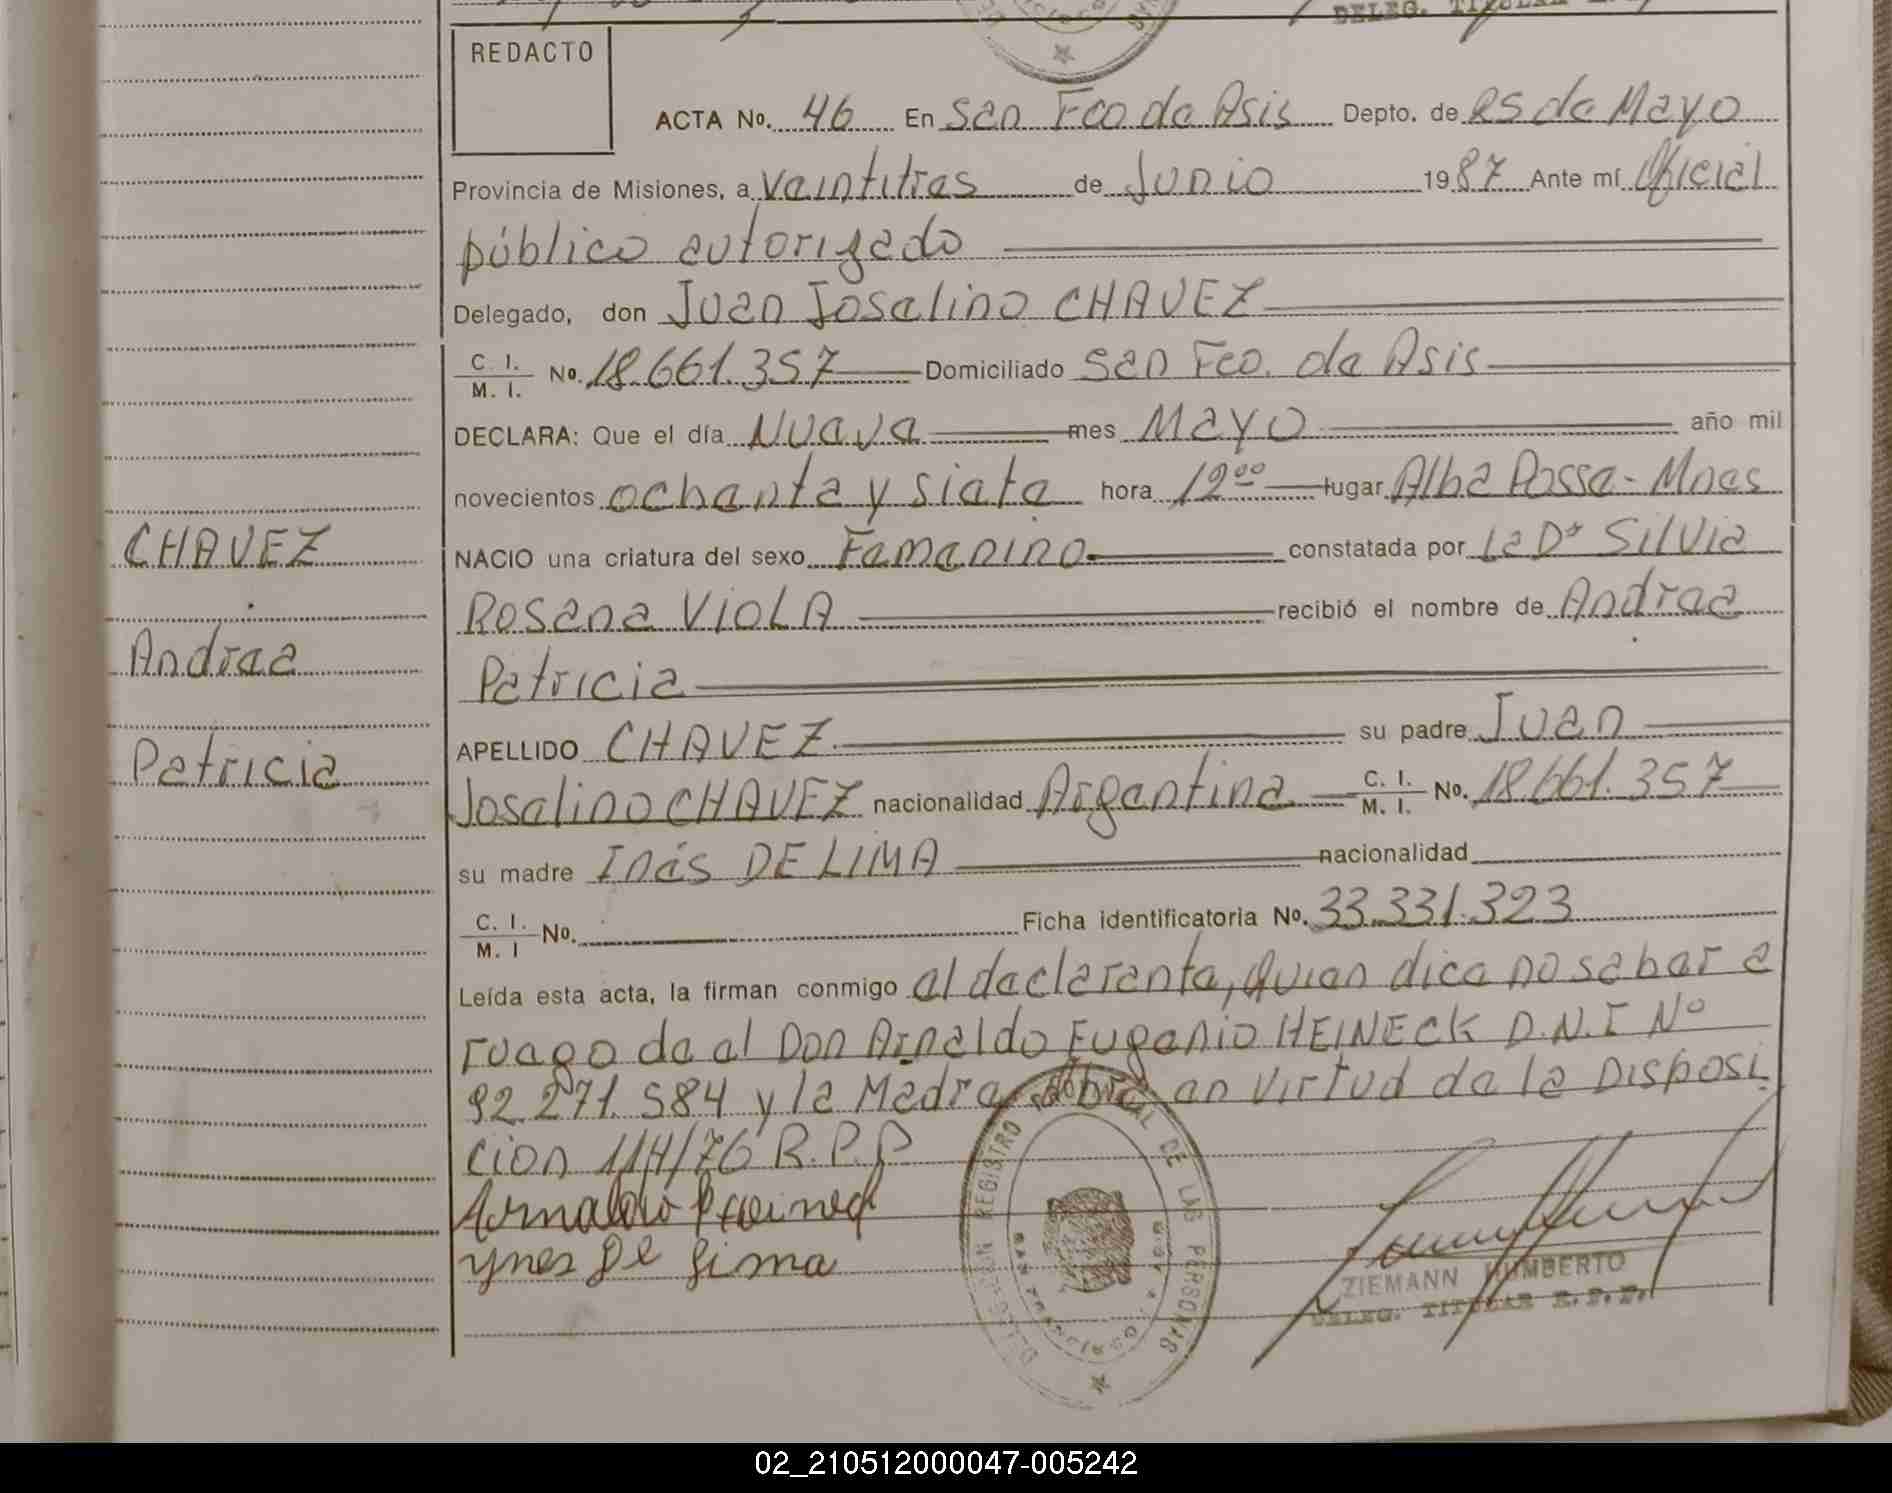 DELEG. TITULAR
REDACTO
ACTA No. 46 En San Fco de Asis Depto. de 25 de Mayo
Provincia de Misiones, a Veintitres de Junio 1987 Ante mí Oficial
público autorizado
Delegado, don Juan Joselino CHAVEZ
C. I. / M. I. No. 18.661.357 Domiciliado San Fco. de Asis
DECLARA: Que el día Nueve mes Mayo año mil
novecientos ochenta y siete hora 12⁰⁰ lugar Alba Posse - Mnes
NACIO una criatura del sexo Femenino constatada por la Dra Silvia
Rosana VIOLA recibió el nombre de Andrea
Patricia
APELLIDO CHAVEZ su padre Juan
Joselino CHAVEZ nacionalidad Argentina C. I. / M. I. No. 18.661.357
su madre Inés DE LIMA nacionalidad
C. I. / M. I No. Ficha identificatoria No. 33.331.323
Leída esta acta, la firman conmigo el declarante, quien dice no saber a
ruego de el Don Arnaldo Eugenio HEINECK D.N.I Nº
92.271.584 y la Madre en Virtud de la Disposi
cion 114/76 R.P.P
Arnaldo Heineck
ynes de Lima
CHAVEZ
Andrea
Patricia
DELEGACION REGISTRO PROVINCIAL DE LAS PERSONAS
SAN FRANCISCO DE ASIS
ZIEMANN HUMBERTO
DELEG. TITULAR R.P.P.
02_210512000047-005242